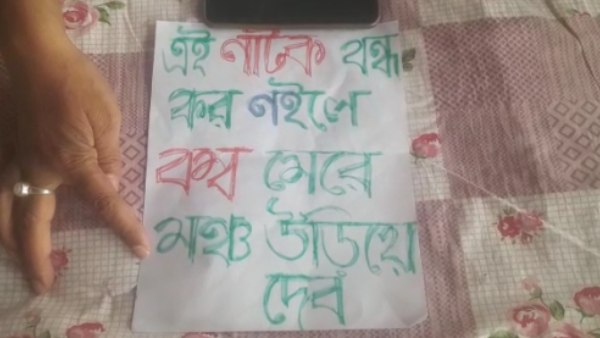 এই ণাটক বন্ধ
কর ণইলে
বম্ব মেরে
মঞ্চ উড়িয়ে
দেব